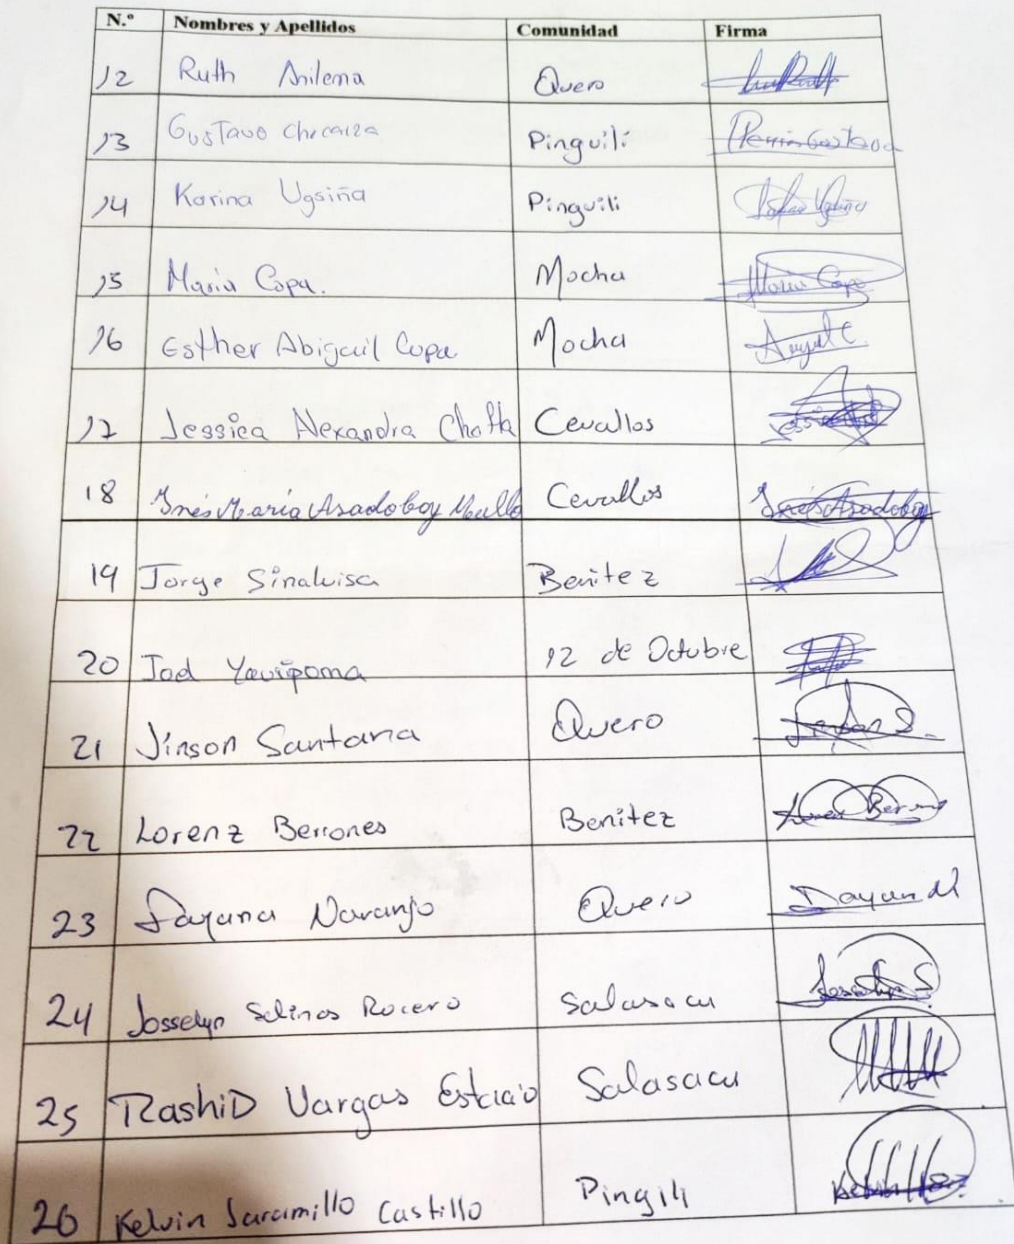 N.º Nombres y Apellidos Comunidad Firma
12 Ruth Anilema Quero
13 Gustavo Chicaiza Pinguilí
14 Karina Ugsiña Pinguili
15 Maria Copa. Mocha Maria Copa
16 Esther Abigail Copa Mocha
17 Jessica Alexandra Chafla Cevallos
18 Inés María Asadobay Cevallos Inés Asadobay
19 Jorge Sinaluisa Benitez
20 Joel Yauripoma 12 de Octubre
21 Jinson Santana Quero
22 Lorenz Berrones Benitez
23 Dayana Naranjo Quero Dayan N
24 Josselyn Salinas Rocero Salasacu
25 RashiD Vargas Estacio Salasacu
26 Kelvin Jaramillo Castillo Pingili